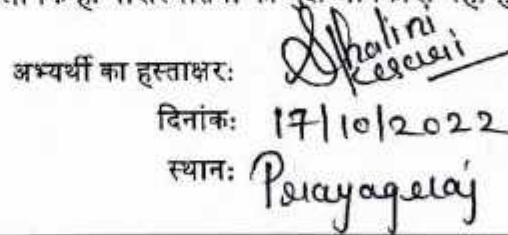 अभ्यर्थी का हस्ताक्षर: Shalini
दिनांक: 17/10/2022
स्थान: Prayagraj